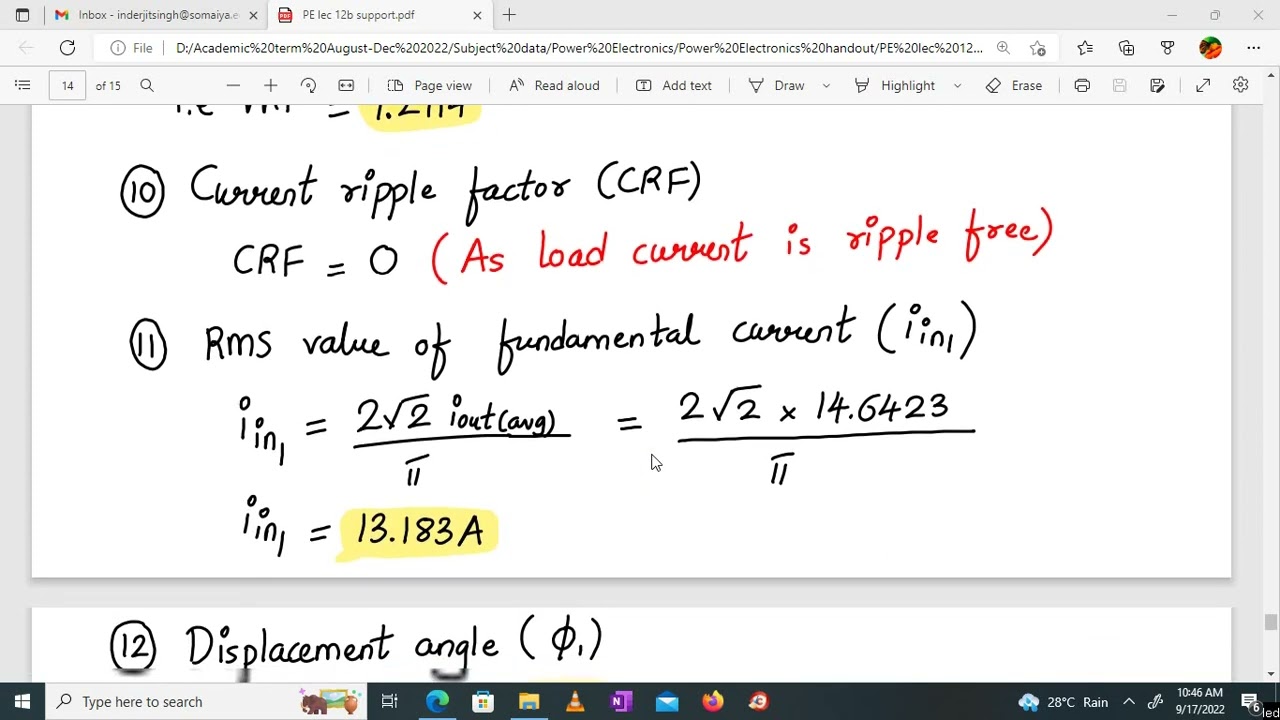 Inbox - inderjitsingh@somaiya.e
PE lec 12b support.pdf
File
D:/Academic%20term%20August-Dec%202022/Subject%20data/Power%20Electronics/Power%20Electronics%20handout/PE%20lec%2012...
14 of 15
Page view
Read aloud
Add text
Draw
Highlight
Erase
⑩ Current ripple factor (CRF)
CRF = 0 (As load current is ripple free)
⑪ Rms value of fundamental current (i in1)
i in1 = 2√2 iout(avg) / π = 2√2 × 14.6423 / π
i in1 = 13.183A
⑫ Displacement angle (ϕ1)
Type here to search
28°C Rain
10:46 AM
9/17/2022
6